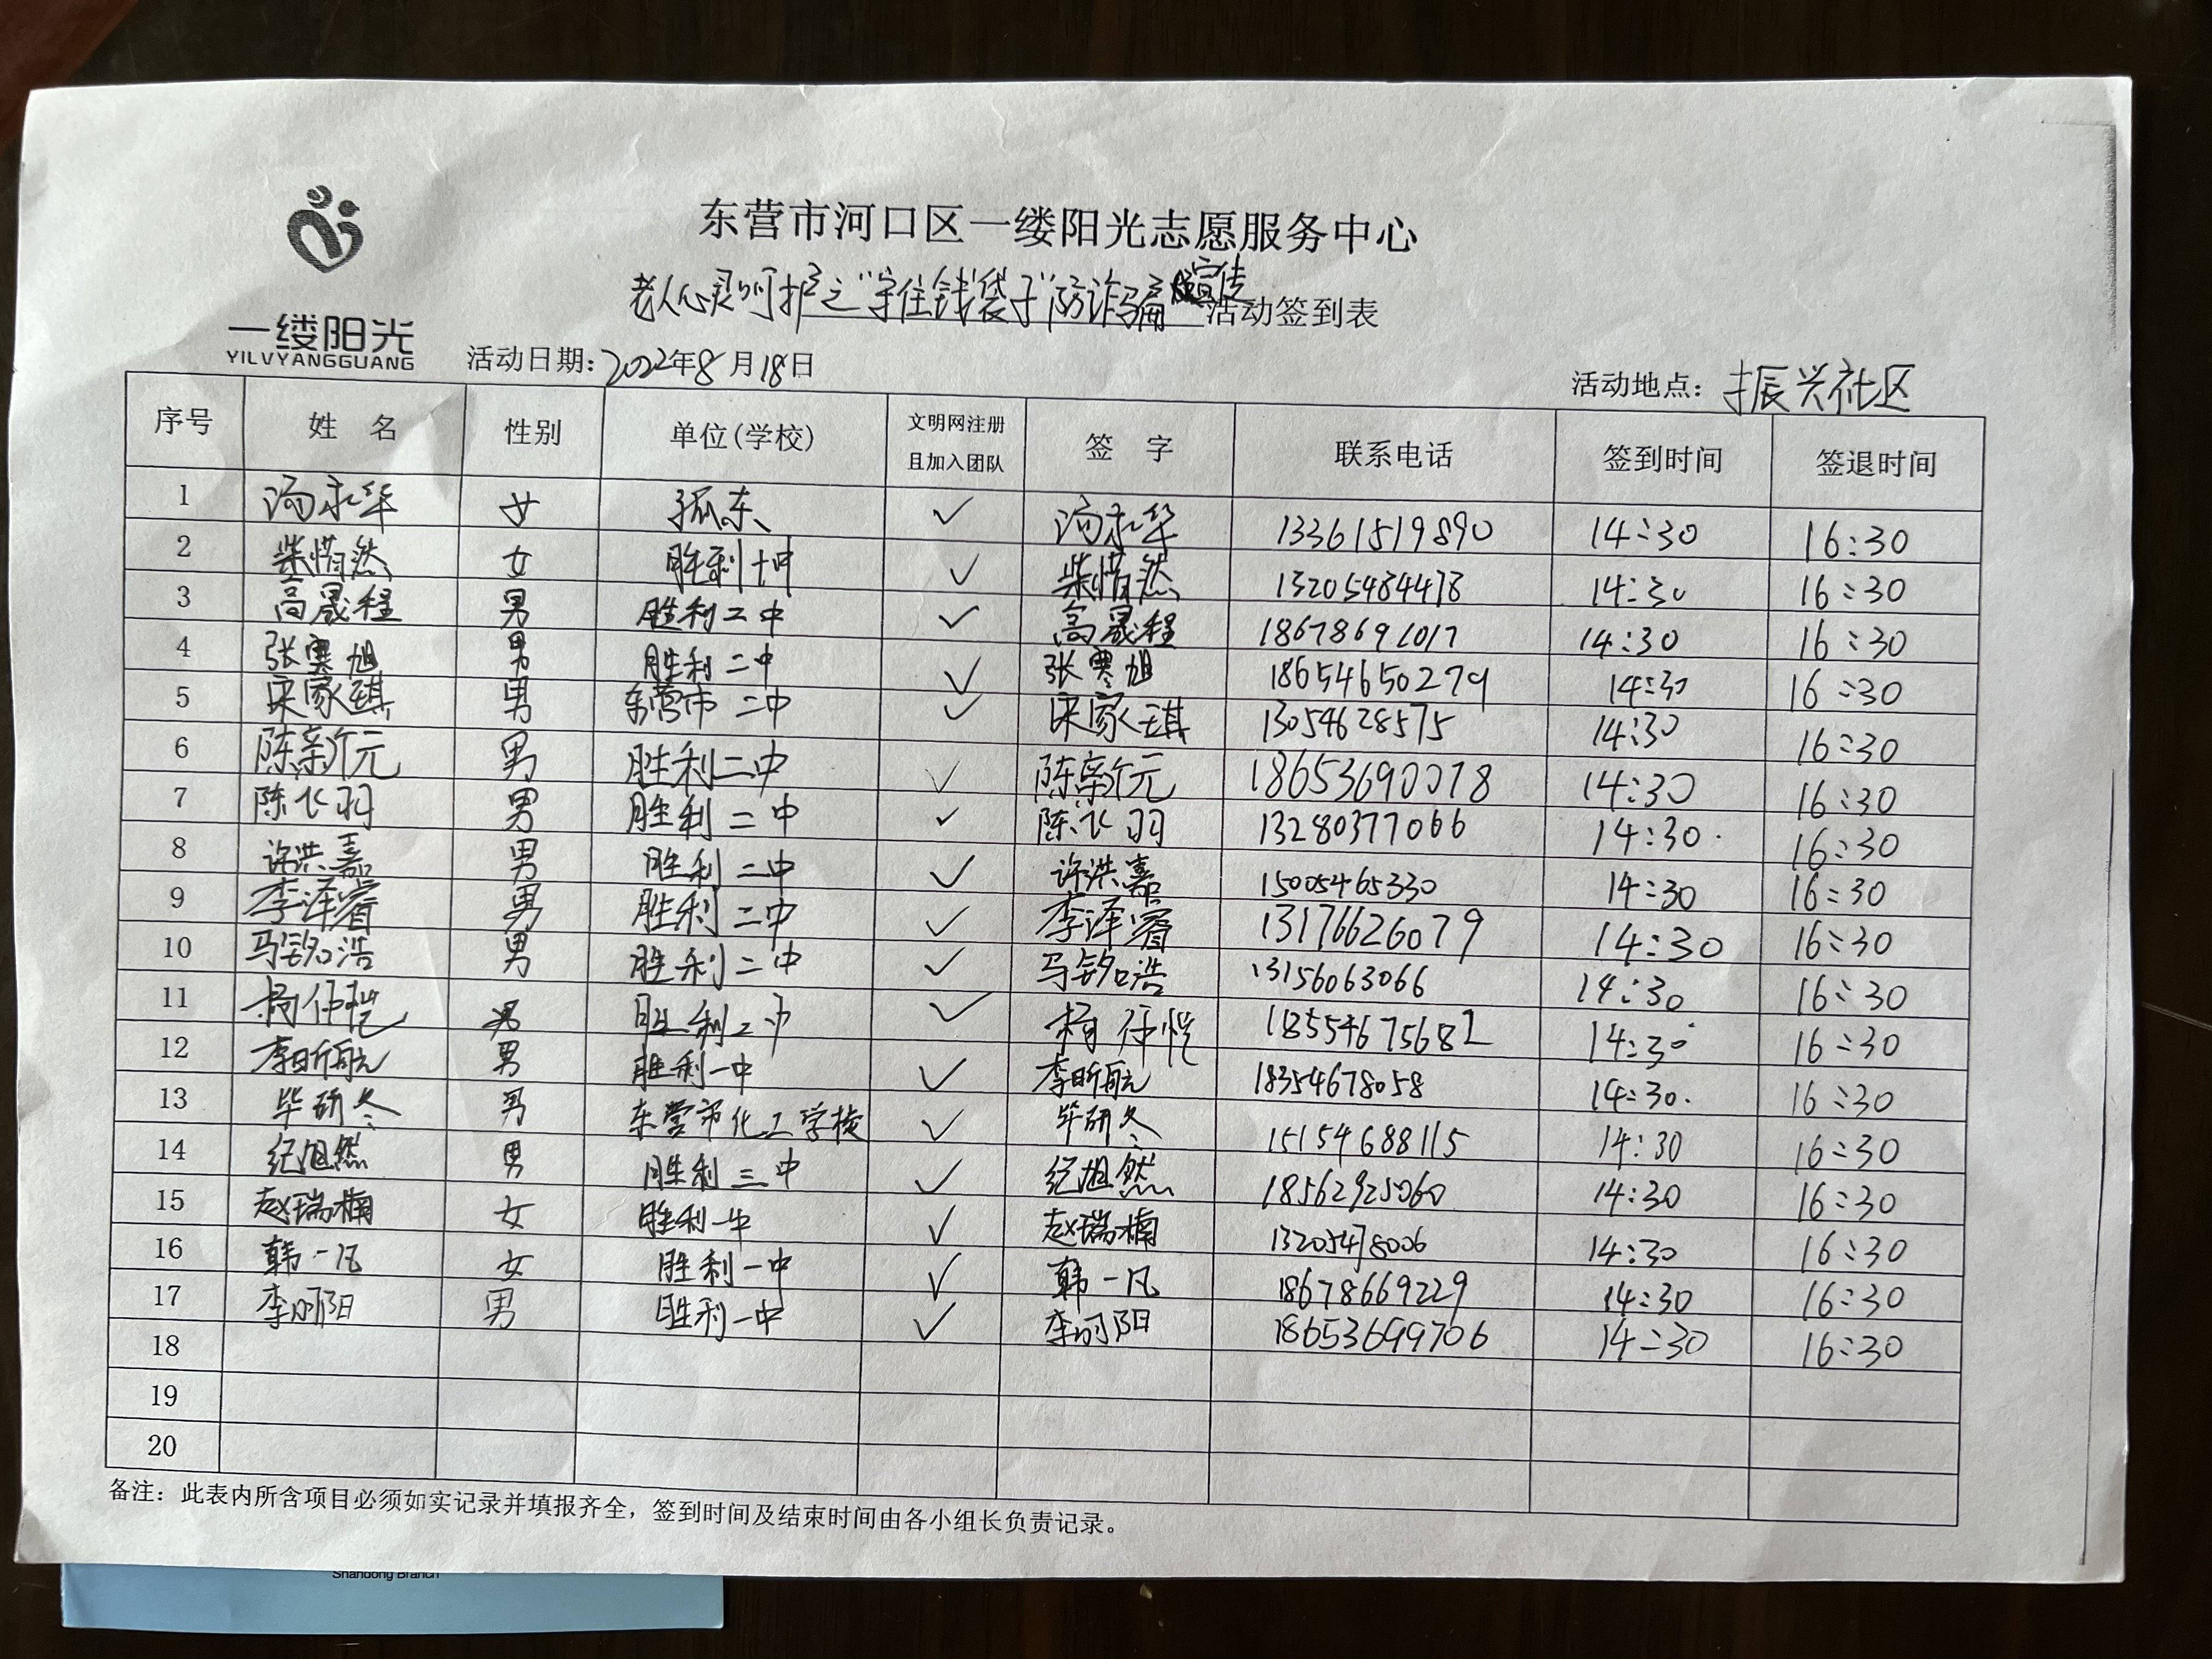 东营市河口区一缕阳光志愿服务中心
老人心灵呵护之"守住钱袋子"防诈骗宣传活动签到表
一缕阳光
YILVYANGGUANG
活动日期：2022年8月18日
活动地点：振兴社区
序号 姓 名 性别 单位(学校) 文明网注册且加入团队 签 字 联系电话 签到时间 签退时间
1 汤永华 女 孤东 ✓ 汤永华 13361519890 14:30 16:30
2 柴惜然 女 胜利十中 ✓ 柴惜然 13205484478 14:30 16:30
3 高晟程 男 胜利二中 ✓ 高晟程 18678691017 14:30 16:30
4 张寒旭 男 胜利二中 ✓ 张寒旭 18654650279 14:30 16:30
5 宋家琪 男 东营市二中 ✓ 宋家琪 13054628575 14:30 16:30
6 陈新元 男 胜利二中 ✓ 陈新元 18653690078 14:30 16:30
7 陈飞羽 男 胜利二中 ✓ 陈飞羽 13280377066 14:30 16:30
8 许洪嘉 男 胜利二中 ✓ 许洪嘉 15005465330 14:30 16:30
9 李泽睿 男 胜利二中 ✓ 李泽睿 13176626079 14:30 16:30
10 马铭浩 男 胜利二中 ✓ 马铭浩 13156063066 14:30 16:30
11 男 胜利二中 ✓ 18554675682 14:30 16:30
12 李昕航 男 胜利一中 ✓ 李昕航 18354678058 14:30 16:30
13 毕研冬 男 东营市化工学校 ✓ 毕研冬 15154688115 14:30 16:30
14 纪旭然 男 胜利三中 ✓ 纪旭然 18562925060 14:30 16:30
15 赵瑞楠 女 胜利一中 ✓ 赵瑞楠 14:30 16:30
16 韩一凡 女 胜利一中 ✓ 韩一凡 18678669229 14:30 16:30
17 李明阳 男 胜利一中 ✓ 李明阳 18653699706 14:30 16:30
18
19
20
备注：此表内所含项目必须如实记录并填报齐全，签到时间及结束时间由各小组长负责记录。
Shandong Branch